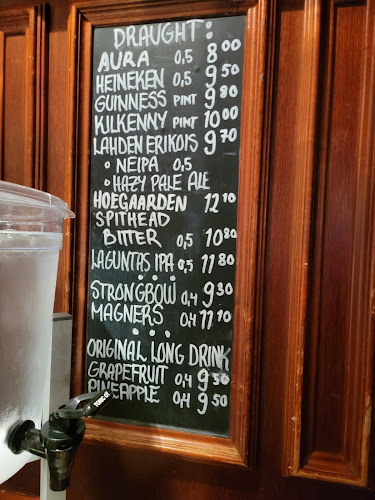 DRAUGHT:
AURA 0,5 8 00
HEINEKEN 0,5 9 50
GUINNESS PINT 9 80
KILKENNY PINT 10 00
LAHDEN ERIKOIS 9 70
• NEIPA 0,5
• HAZY PALE ALE
HOEGAARDEN 12 10
SPITHEAD
BITTER 0,5 10 80
LAGUNTAS IPA 0,5 11 80
STRONGBOW 0,4 9 30
MAGNERS 0,4 11 10
ORIGINAL LONG DRINK
GRAPEFRUIT 0,4 9 50
PINEAPPLE 0,4 9 50